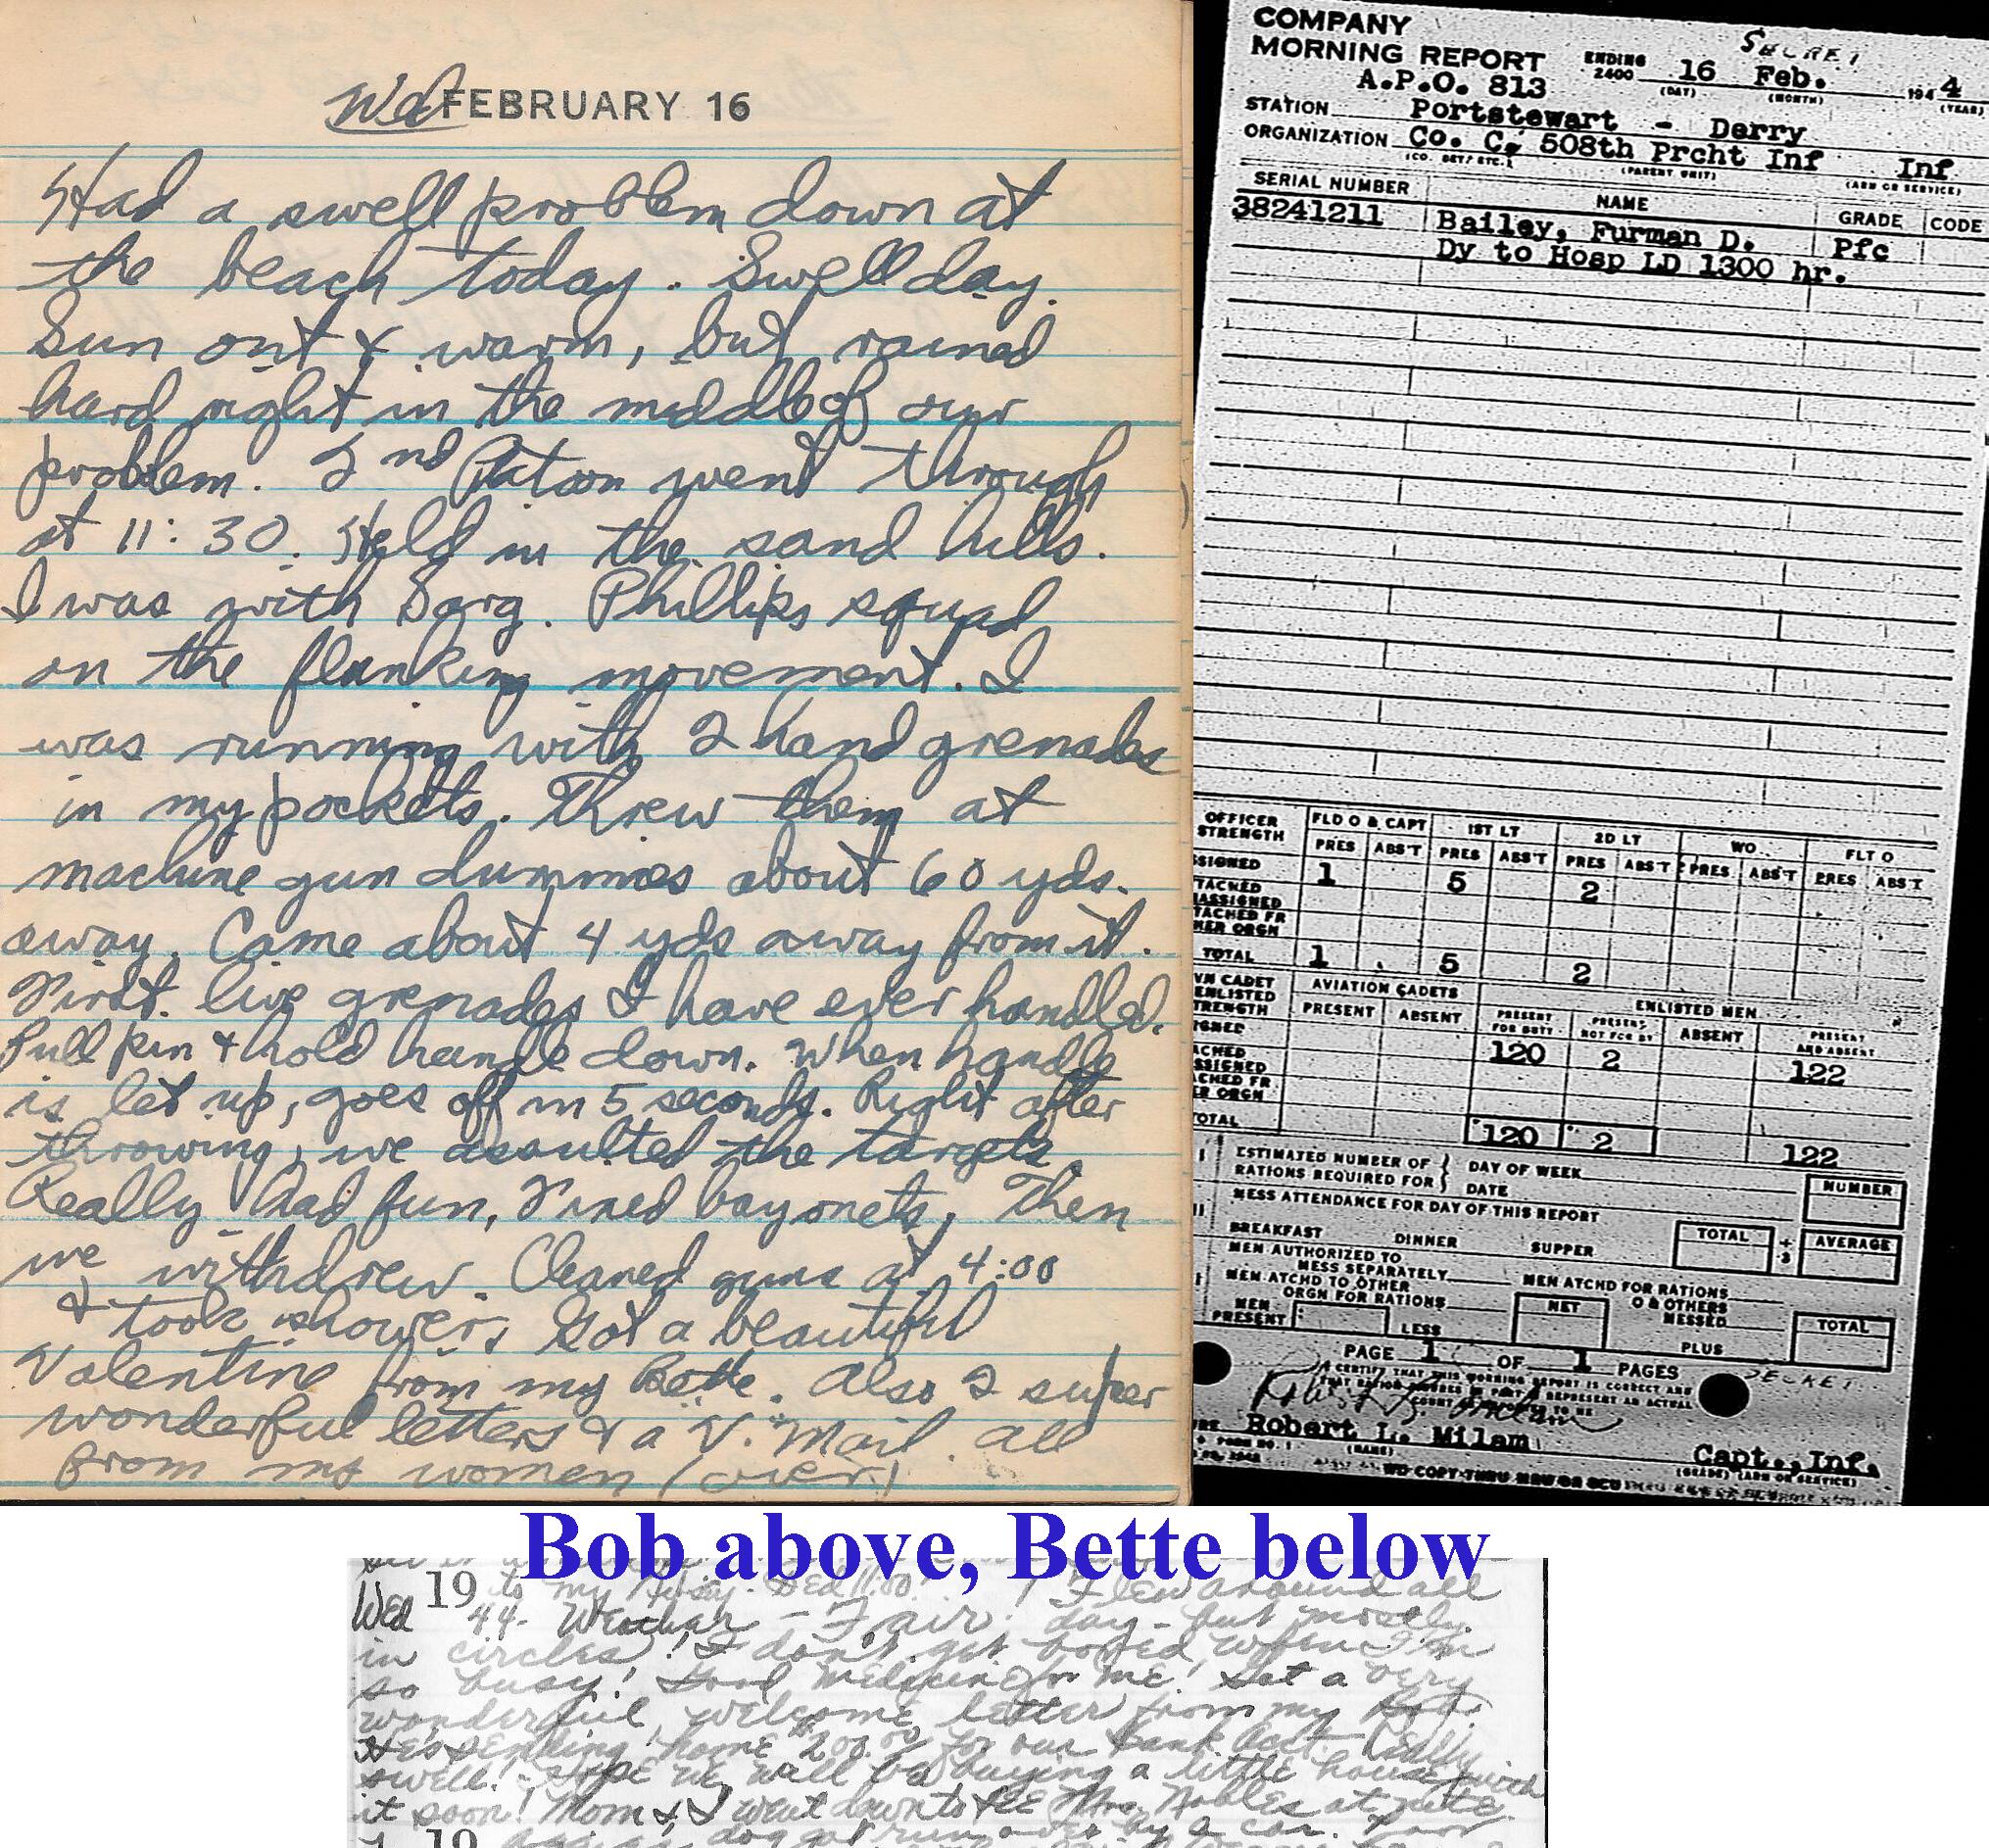 Wed FEBRUARY 16
Had a swell problem down at
the beach today. Swell day.
Sun out & warm, but rained
hard right in the middle of our
problem. 2nd Platoon went through
at 11:30. Held in the sand hills.
I was with Sarg. Phillips squad
on the flanking movement. I
was running with 2 hand grenades
in my pockets. Threw them at
machine gun dummies about 60 yds.
away. Came about 4 yds away from it.
First live grenades I have ever handled.
Pull pin & hold handle down. When handle
is let up, goes off in 5 seconds. Right after
throwing, we assulted the targets.
Really had fun. Fixed bayonets. Then
we withdrew. Cleaned guns at 4:00
& took showers. Got a beautiful
Valentine from my Bette. Also 2 super
wonderful letters & a V. Mail. all
from my women (over)
COMPANY
MORNING REPORT ENDING 2400 16 Feb. 1944
SECRET
(DAY) (MONTH) (YEAR)
A.P.O. 813
STATION Portstewart - Derry
ORGANIZATION Co. C, 508th Prcht Inf Inf
(CO. DET. ETC.) (PARENT UNIT) (ARM OR SERVICE)
SERIAL NUMBER NAME GRADE CODE
38241211 Bailey, Furman D. Pfc
Dy to Hosp LD 1300 hr.
OFFICER STRENGTH FLD O & CAPT 1ST LT 2D LT WO FLT O
PRES ABS'T PRES ABS'T PRES ABS'T PRES ABS'T PRES ABS'T
SSIGNED 1 5 2
TACHED
ASSIGNED
TACHED FR
HER ORGN
TOTAL 1 5 2
VN CADET
ENLISTED
RENGTH
AVIATION CADETS ENLISTED MEN
PRESENT ABSENT PRESENT FOR DUTY PRESENT NOT FOR DY ABSENT PRESENT AND ABSENT
IGNED 120 2 122
CHED
SSIGNED
CHED FR
ER ORGN
OTAL 120 2 122
ESTIMATED NUMBER OF RATIONS REQUIRED FOR DAY OF WEEK
DATE NUMBER
MESS ATTENDANCE FOR DAY OF THIS REPORT
BREAKFAST DINNER SUPPER TOTAL ÷3 AVERAGE
MEN AUTHORIZED TO
MESS SEPARATELY MEN ATCHD FOR RATIONS
MEN ATCHD TO OTHER
ORGN FOR RATIONS O & OTHERS MESSED
MEN PRESENT LESS NET PLUS TOTAL
PAGE 1 OF 1 PAGES
I CERTIFY THAT THIS MORNING REPORT IS CORRECT AND
SECRET
Robert L. Milam Capt., Inf.
(NAME) (GRADE) (ARM OR SERVICE)
Bob above, Bette below
19 to my Wed 11:00! I flew around all
Wed 44- Weather - Fair! day - but mostly
in circles! I don't get bored when I'm
so busy! Good medicine for me! Got a very
wonderful, welcome letter from my
He's sending home 200.00 for our bank acct. Really
swell! - Hope we will be buying a little house with
it soon! Mom & I went down to see Mrs. Nobles at
19 dog got run over by a car.